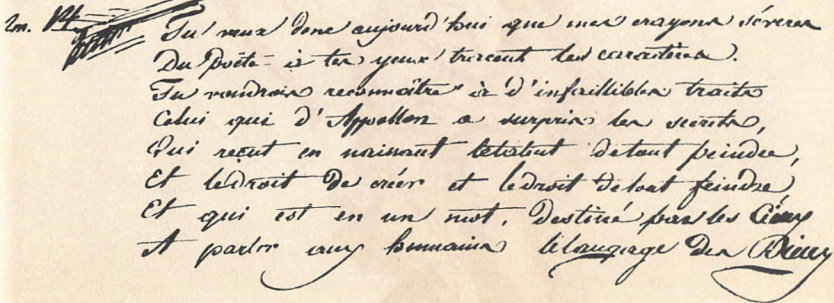 Tu veux donc aujourd'hui que mes crayons sévères
Du Poëte à tes yeux tracent les caractères.
Tu voudrais reconnaître à d'infaillibles traits
Celui qui d'Appollon a surpris les secrets,
Qui reçut en naissant le talent de tout peindre,
Et le droit de créer et le droit de tout feindre,
Et qui est en un mot, destiné par les Cieux
A parler aux humains le langage des Dieux